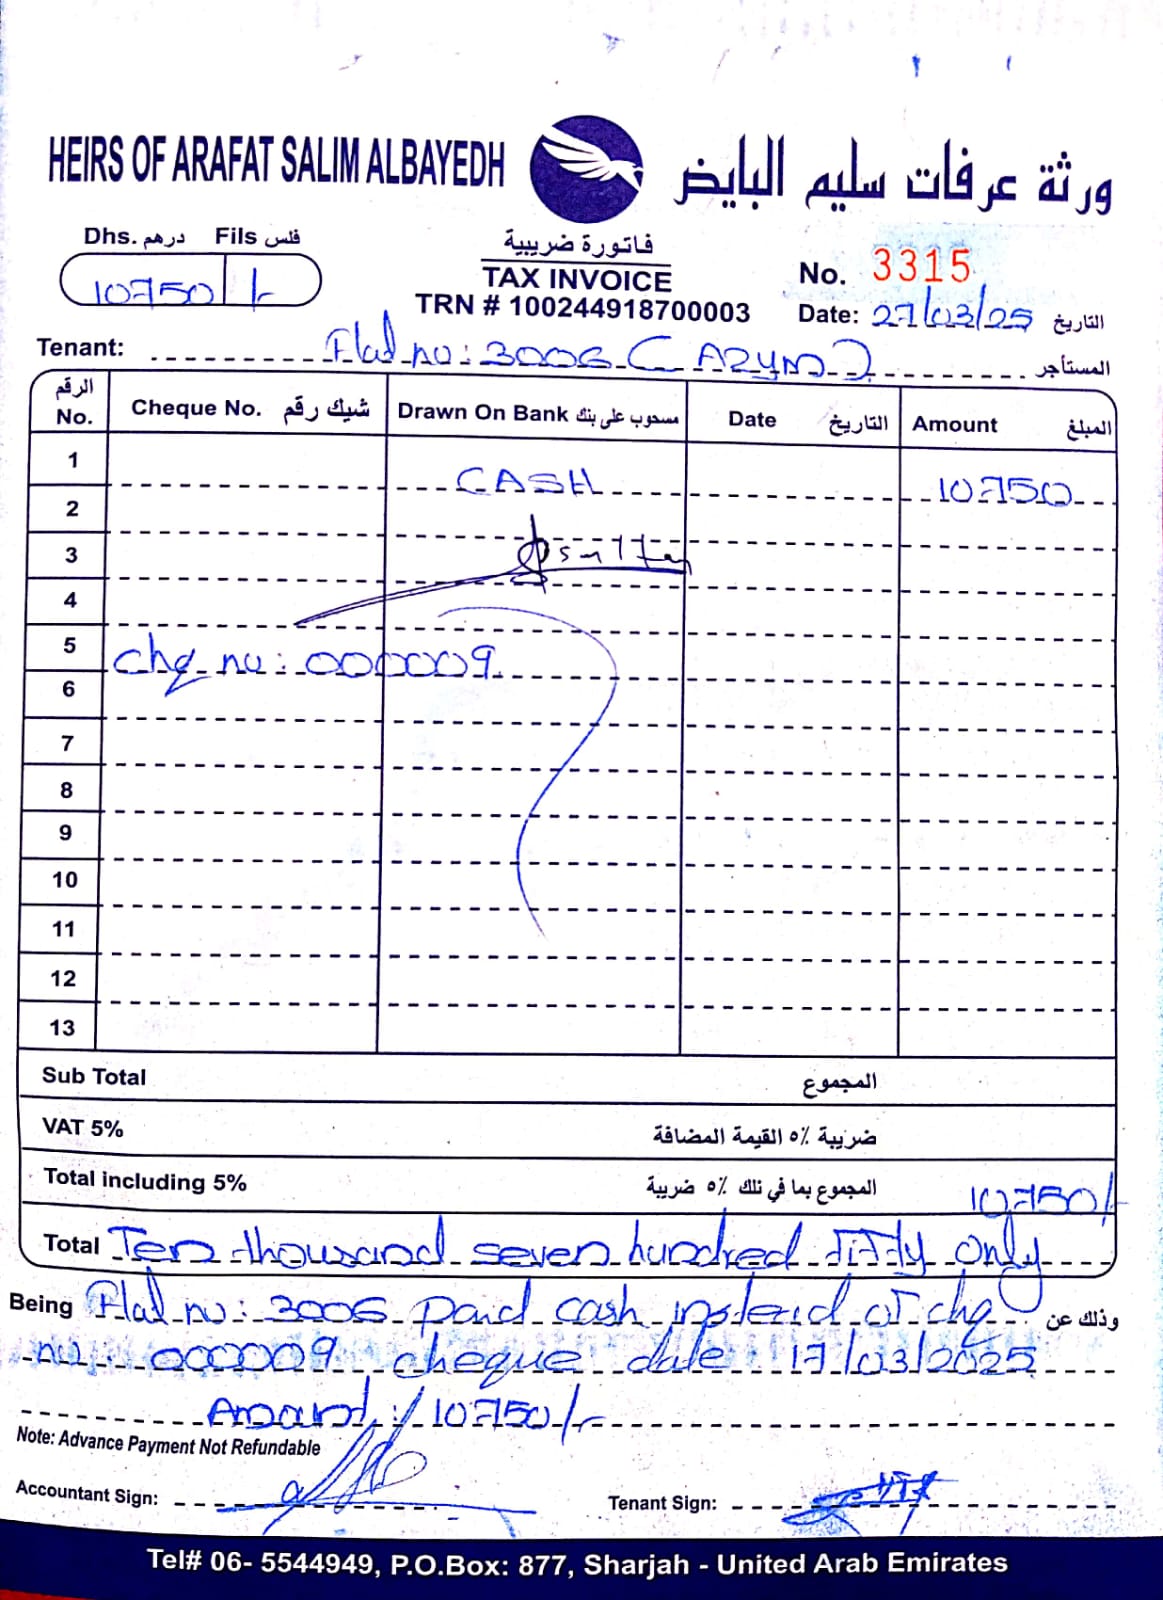 HEIRS OF ARAFAT SALIM ALBAYEDH
ورثة عرفات سليم البايض
Dhs. درهم Fils فلس
10750 /-
فاتورة ضريبية
TAX INVOICE
TRN # 100244918700003
No. 3315
Date: 27/03/25 التاريخ
Tenant: Flat no: 3006 ( AZYM ) المستأجر
الرقم No. Cheque No. شيك رقم Drawn On Bank مسحوب على بنك Date التاريخ Amount المبلغ
1 CASH 10750
2
3
4
5 Chq no: 000009
6
7
8
9
10
11
12
13
Sub Total المجموع
VAT 5% ضريبة ٥٪ القيمة المضافة
Total including 5% المجموع بما في ذلك ٥٪ ضريبة 10750/-
Total Ten thousand seven hundred fifty only
Being Flat no: 3006 paid cash instead of chq وذلك عن
no: 000009 cheque date 17/03/2025
Amount: 10750/-
Note: Advance Payment Not Refundable
Accountant Sign:
Tenant Sign:
Tel# 06- 5544949, P.O.Box: 877, Sharjah - United Arab Emirates